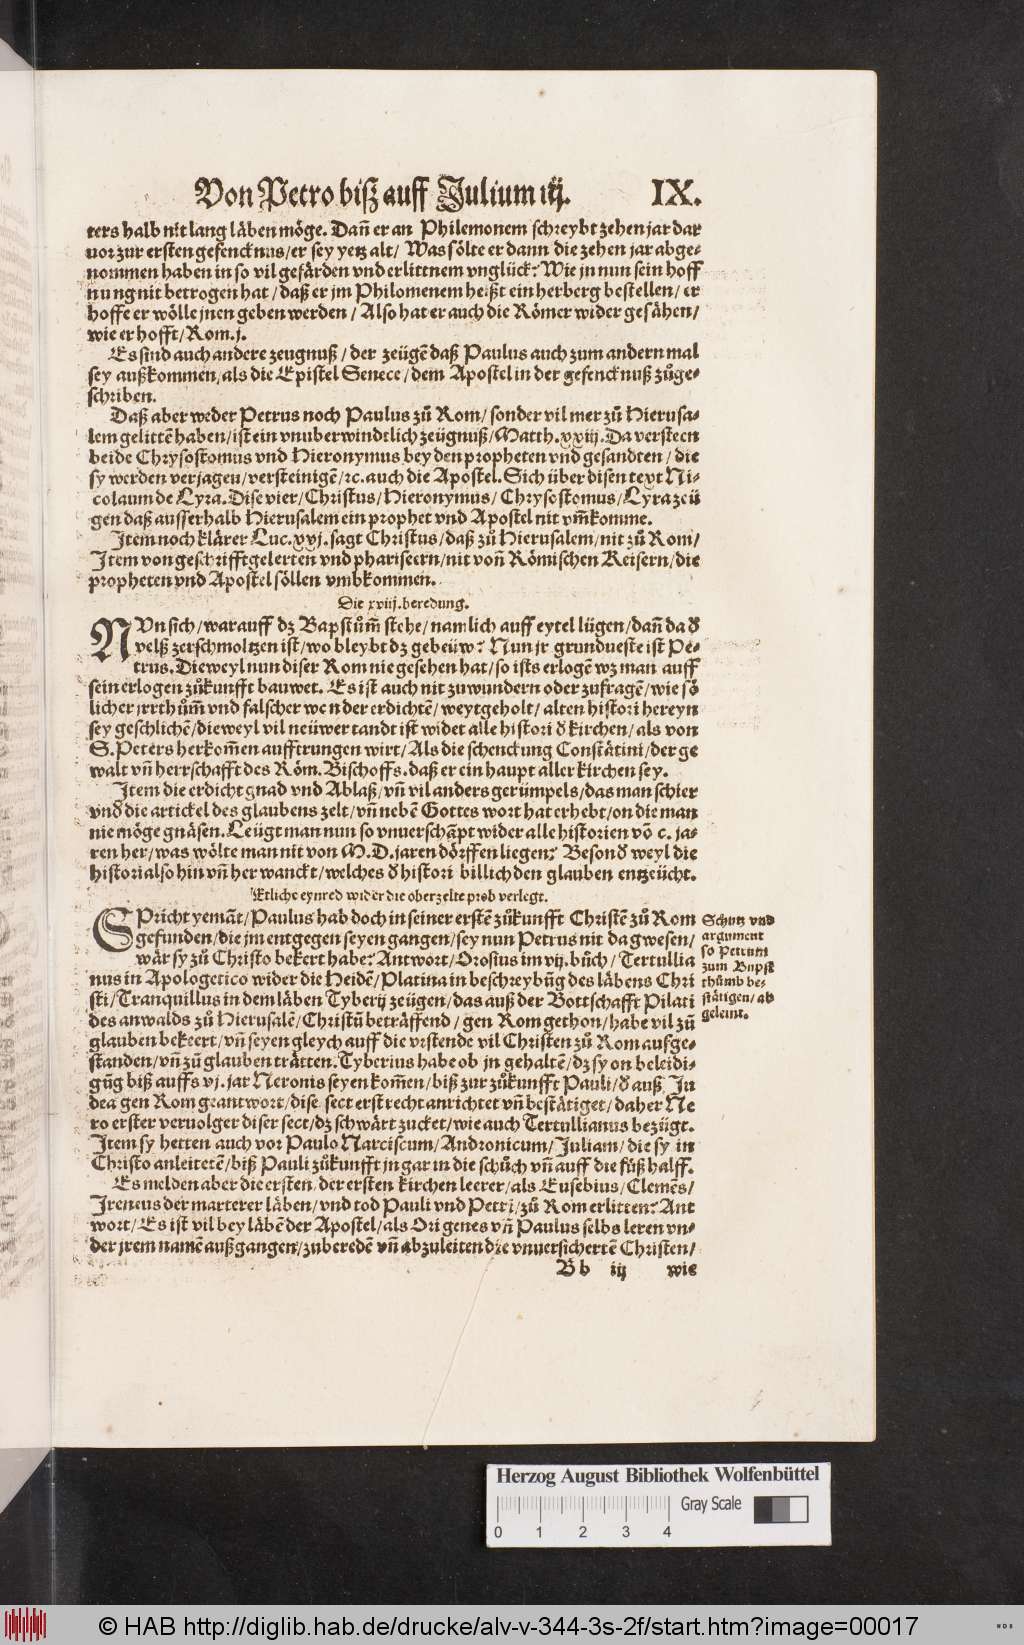 Von Petro biß auff Julium iij. IX.
ters halb nit lang läben möge. Dañ er an Philemonem schreybt zehen jar dar
uor zur ersten gefencknus/er sey yetz alt/ Was sölte er dann die zehen jar abge-
nommen haben in so vil gefärden vnd erlittnem vnglück? Wie jn nun sein hoff
nung nit betrogen hat / daß er jm Philomenem heißt ein herberg bestellen / er
hoffe er wölle jnen geben werden / Also hat er auch die Römer wider gesähen/
wie er hofft/Rom.j.
Es sind auch andere zeugnuß / der zeügē daß Paulus auch zum andern mal
sey außkommen/als die Epistel Senece / dem Apostel in der gefencknuß zůge-
schriben.
Daß aber weder Petrus noch Paulus zů Rom/ sonder vil mer zů Hierusa-
lem gelittē haben/ist ein vnuberwindtlich zeügnuß/Matth.xxiij. Da versteen
beide Chrysostomus vnd Hieronymus bey den propheten vnd gesandten / die
sy werden verjagen/versteinigē/ꝛc.auch die Apostel. Sich über disen text Ni-
colaum de Lyra. Dise vier/Christus/Hieronymus/ Chrysostomus/Lyra zeü
gen daß ausserhalb Hierusalem ein prophet vnd Apostel nit vm̃komme.
Item noch klärer Luc.xxj.sagt Christus/daß zů Hierusalem/nit zů Rom/
Item von geschrifftgelerten vnd phariseern/nit von Römischen Keisern/die
propheten vnd Apostel söllen vmbkommen.
Die xviij.beredung.
NVn sich/warauff dz Bapstům̃ stehe/namlich auff eytel lügen/dañ da ď
velß zerschmoltzen ist/wo bleybt dz gebeüw? Nun jr grundueste ist Pe-
trus. Dieweyl nun diser Rom nie gesehen hat/so ists erlogē wz man auff
sein erlogen zůkunfft bauwet. Es ist auch nit zuwundern oder zufragē/wie sö
licher jrrthům̃ vnd falscher won der erdichtē/weytgeholt/alten histori hereyn
sey geschlichē/dieweyl vil neüwer tandt ist widet alle histori ď kirchen/als von
S.Peters herkom̃en aufftrungen wirt/Als die schenckung Constātini/der ge
walt vñ herrschafft des Röm.Bischoffs.daß er ein haupt aller kirchen sey.
Item die erdicht gnad vnd Ablaß/vñ vil anders gerümpels/das man schier
vnď die artickel des glaubens zelt/vñ nebē Gottes wort hat erhebt/on die man
nie möge gnäsen. Leügt man nun so vnuerschāpt wider alle historien vō c. ja-
ren her/was wölte man nit von M.D.jaren dörffen liegen? Besonď weyl die
histori also hin vñ her wanckt/welches ď histori billich den glauben entzeücht.
Etliche eynred wider die oberzelte prob verlegt.
SPricht yemāt/Paulus hab doch in seiner erstē zůkunfft Christē zů Rom
gefunden/die jm entgegen seyen gangen/sey nun Petrus nit da gwesen/
wär sy zů Christo bekert habe? Antwort/Orosius im vij.bůch/Tertullia
nus in Apologetico wider die Heidē/Platina in beschreybūg des läbens Chri
sti/Tranquillus in dem läben Tyberij zeügen/das auß der Bottschafft Pilati
des anwalds zů Hierusalē/Christū beträffend / gen Rom gethon/habe vil zů
glauben bekeert/vñ seyen gleych auff die vrstende vil Christen zů Rom aufge-
standen/vñ zů glauben trätten. Tyberius habe ob jn gehaltē/dz sy on beleidi-
gūg biß auffs vj.jar Neronis seyen kom̃en/biß zur zůkunfft Pauli/ď auß Ju
dea gen Rom grantwort/dise sect erst recht anrichtet vñ bestätiget/daher Ne
ro erster veruolger diser sect/dz schwärt zucket/wie auch Tertullianus bezügt.
Item sy hetten auch vor Paulo Narciscum/Andronicum/Juliam/die sy in
Christo anleitetē/biß Pauli zůkunfft jn gar in die schůch vñ auff die fůß halff.
Es melden aber die ersten/der ersten kirchen leerer/als Eusebius/Clemēs/
Ireneus der marterer läben/vnd tod Pauli vnd Petri/zů Rom erlitten? Ant
wort/Es ist vil bey läbē der Apostel/als Origenes vñ Paulus selbs leren vn-
der jrem namē außgangen/zuberedē vñ abzuleiten die vnuersichertē Christen/
Bb iij wie
Schutz vnd
argument
so Petrum
zum Bapst
thůmb be-
stätigen/ab
geleint.
Herzog August Bibliothek Wolfenbüttel
Gray Scale
0 1 2 3 4
© HAB http://diglib.hab.de/drucke/alv-v-344-3s-2f/start.htm?image=00017